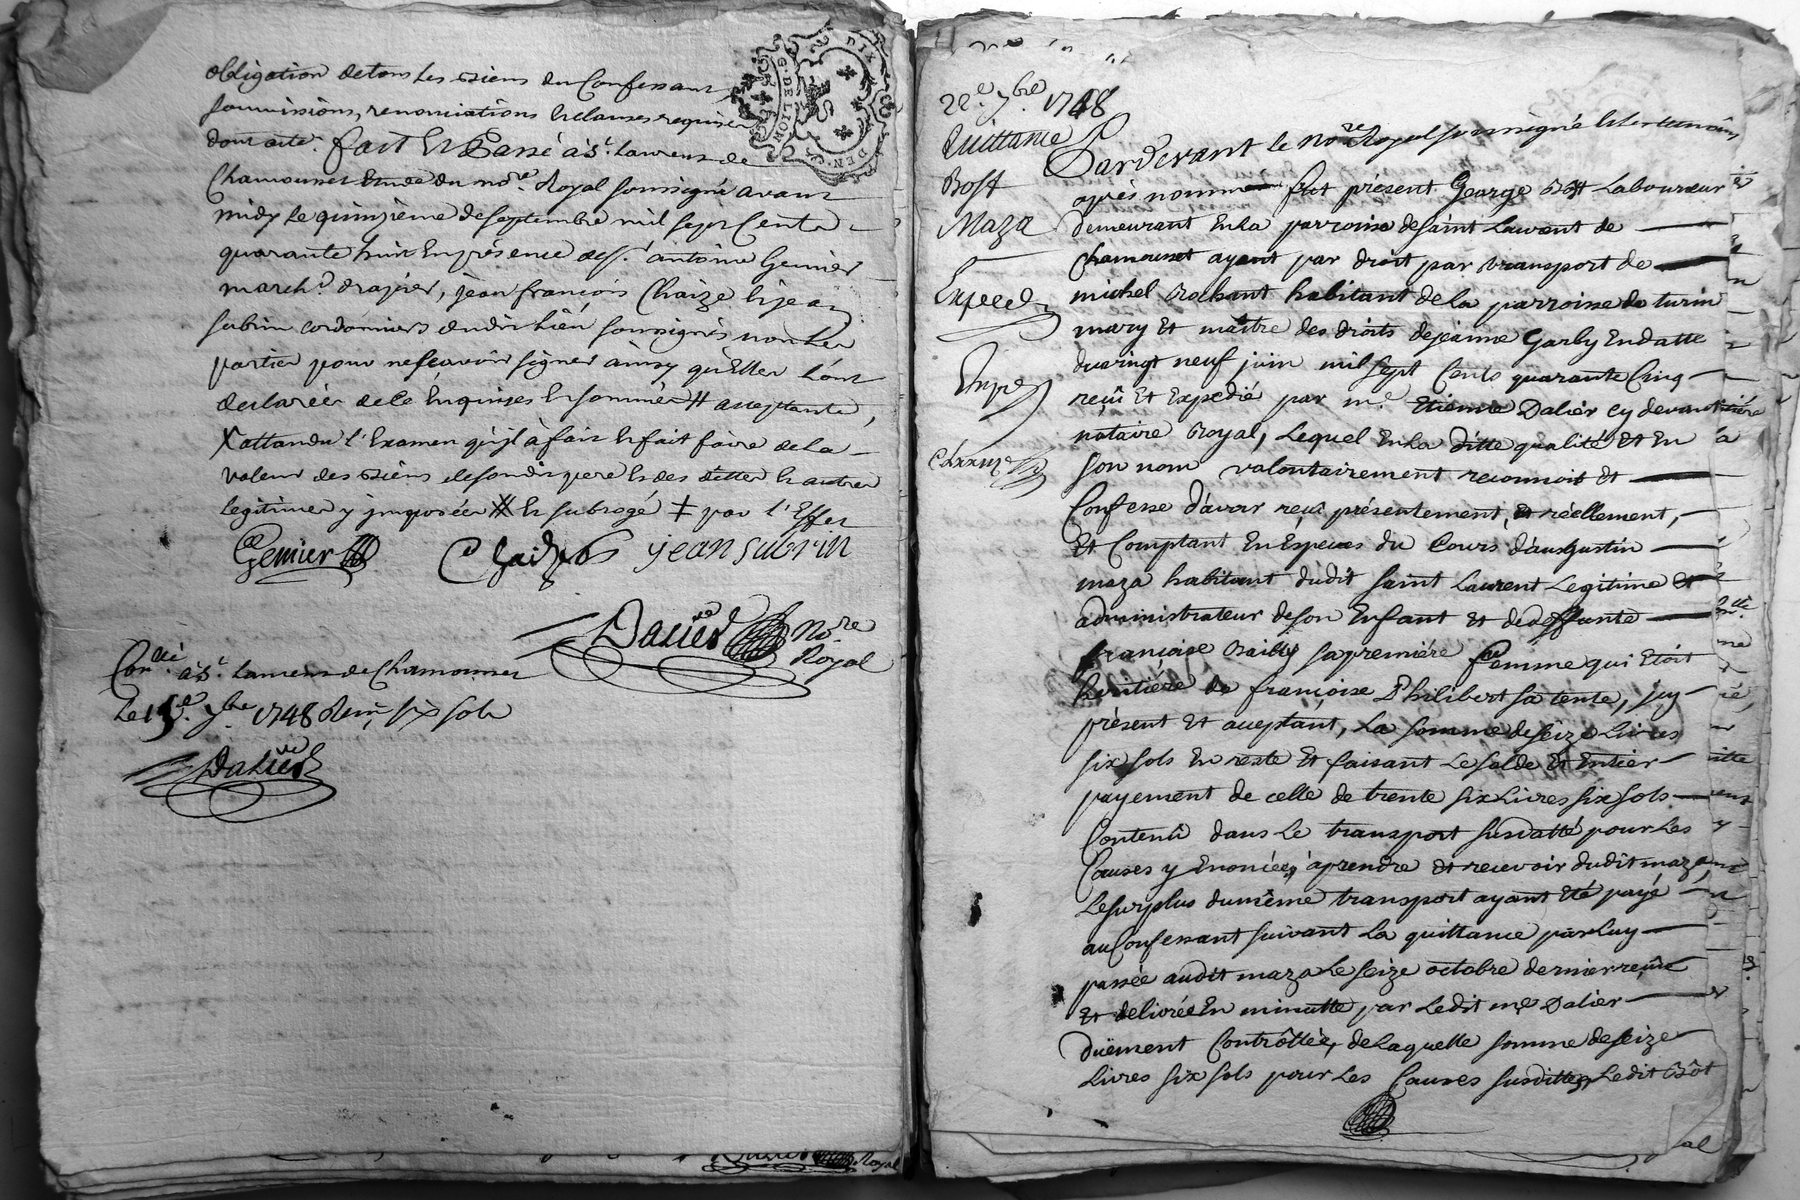 obligation de tous les biens du Confessant,
soumissions, renonciations et clauses requises
dont acte. fait et Passé à St. Laurens de
Chamousset Etude du nore. Royal soussigné avant
midy le quinzième de septembre mil sept Cents
quarante huit En présence de sr. antoine Genier
march.d drapier, jean françois Chaize et jean
subrin cordonniers dudit Lieu soussignés non Les
parties pour ne scavoir signer ainsy qu'Elles L'ont
declarée de ce Enquises et sommées # acceptante,
X attandu l'Examen qu'il à fait et fait faire de la
valeur des biens de sondit pere et des dettes et autres
legitimes y imposées # et subrogé ‡ par l'Effet
Genier Chaize jean subrin
Dalier No.re
Royal
Con.llé à St. Laurens de Chamousset
Le 15.e 7.bre 1748 six sols
Dalier
G. DE LION
DIX
DEN.
22.e 7.bre 1748
Quittance
Bost
Maza
Expeed
Exped
Pardevant le no.re Royal soussigné et les temoins
après nommés fut présent George Bost Laboureur
demeurant En la parroisse de saint Laurent de
chamousset ayant par droit par transport de
michel Rochant habitant de la parroisse de turin
mary Et maitre des droits de jeanne Garby En datte
du vingt neuf juin mil sept Cents quarante Cinq
reçû Et Expedié par m.e Etienne Dalier cy devant
notaire Royal, Lequel En La ditte qualité Et En
son nom volontairement reconnoit Et
Confesse d'avoir reçu présentement, Et réellement,
Et Comptant En Espèces du Cours d'auGustin
maza habitant dudit saint Laurent Legitime Et
administrateur de son Enfant Et de deffunte
françoise Bailly sa première femme qui Etoit
heritière de françoise Philibert sa tente, jcy
présent Et acceptant, La somme de seize Livres
six sols En reste Et faisant Le solde Et Entier
payement de celle de trente six Livres six sols
Contenû dans Le transport susdatté pour Les
Causes y Enoncées, à prendre Et recevoir dudit maza
Le surplus du même transport ayant Eté payé
au Confessant suivant La quittance par Luy
passée audit maza Le seize octobre dernier reçûe
Et delivrée En minutte par Ledit m.e Dalier
duëment Contrôllée, de Laquelle somme de seize
Livres six sols pour Les Causes susdittes, Ledit Bôt
Royal
al